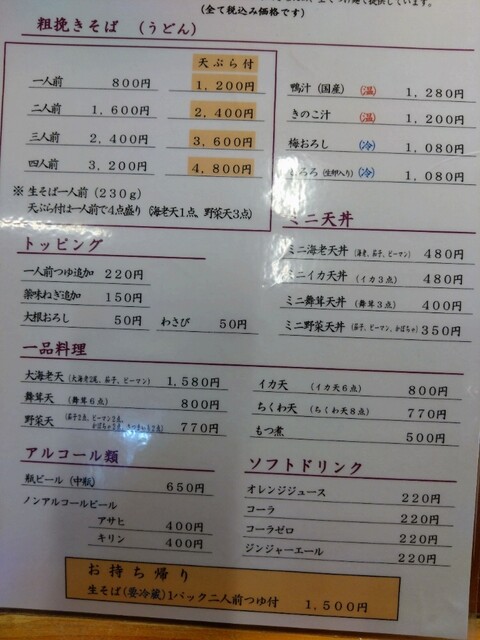 (全て税込み価格です)
粗挽きそば (うどん)
天ぷら付
一人前 800円 1,200円
二人前 1,600円 2,400円
三人前 2,400円 3,600円
四人前 3,200円 4,800円
※ 生そば一人前 (230g)
天ぷら付は一人前で4点盛り (海老天1点、野菜天3点)
鴨汁 (国産) (温) 1,280円
きのこ汁 (温) 1,200円
梅おろし (冷) 1,080円
とろろ (生卵入り) (冷) 1,080円
トッピング
一人前つゆ追加 220円
薬味ねぎ追加 150円
大根おろし 50円 わさび 50円
ミニ天丼
ミニ海老天丼 (海老、茄子、ピーマン) 480円
ミニイカ天丼 (イカ3点) 480円
ミニ舞茸天丼 (舞茸3点) 400円
ミニ野菜天丼 (茄子、ピーマン、かぼちゃ) 350円
一品料理
大海老天 (大海老2尾、茄子、ピーマン) 1,580円
舞茸天 (舞茸6点) 800円
野菜天 (茄子2点、ピーマン2点、
かぼちゃ2点、さつまいも2点) 770円
イカ天 (イカ天6点) 800円
ちくわ天 (ちくわ天8点) 770円
もつ煮 500円
アルコール類
瓶ビール (中瓶) 650円
ノンアルコールビール
アサヒ 400円
キリン 400円
ソフトドリンク
オレンジジュース 220円
コーラ 220円
コーラゼロ 220円
ジンジャーエール 220円
お持ち帰り
生そば(要冷蔵)1パック二人前つゆ付 1,500円